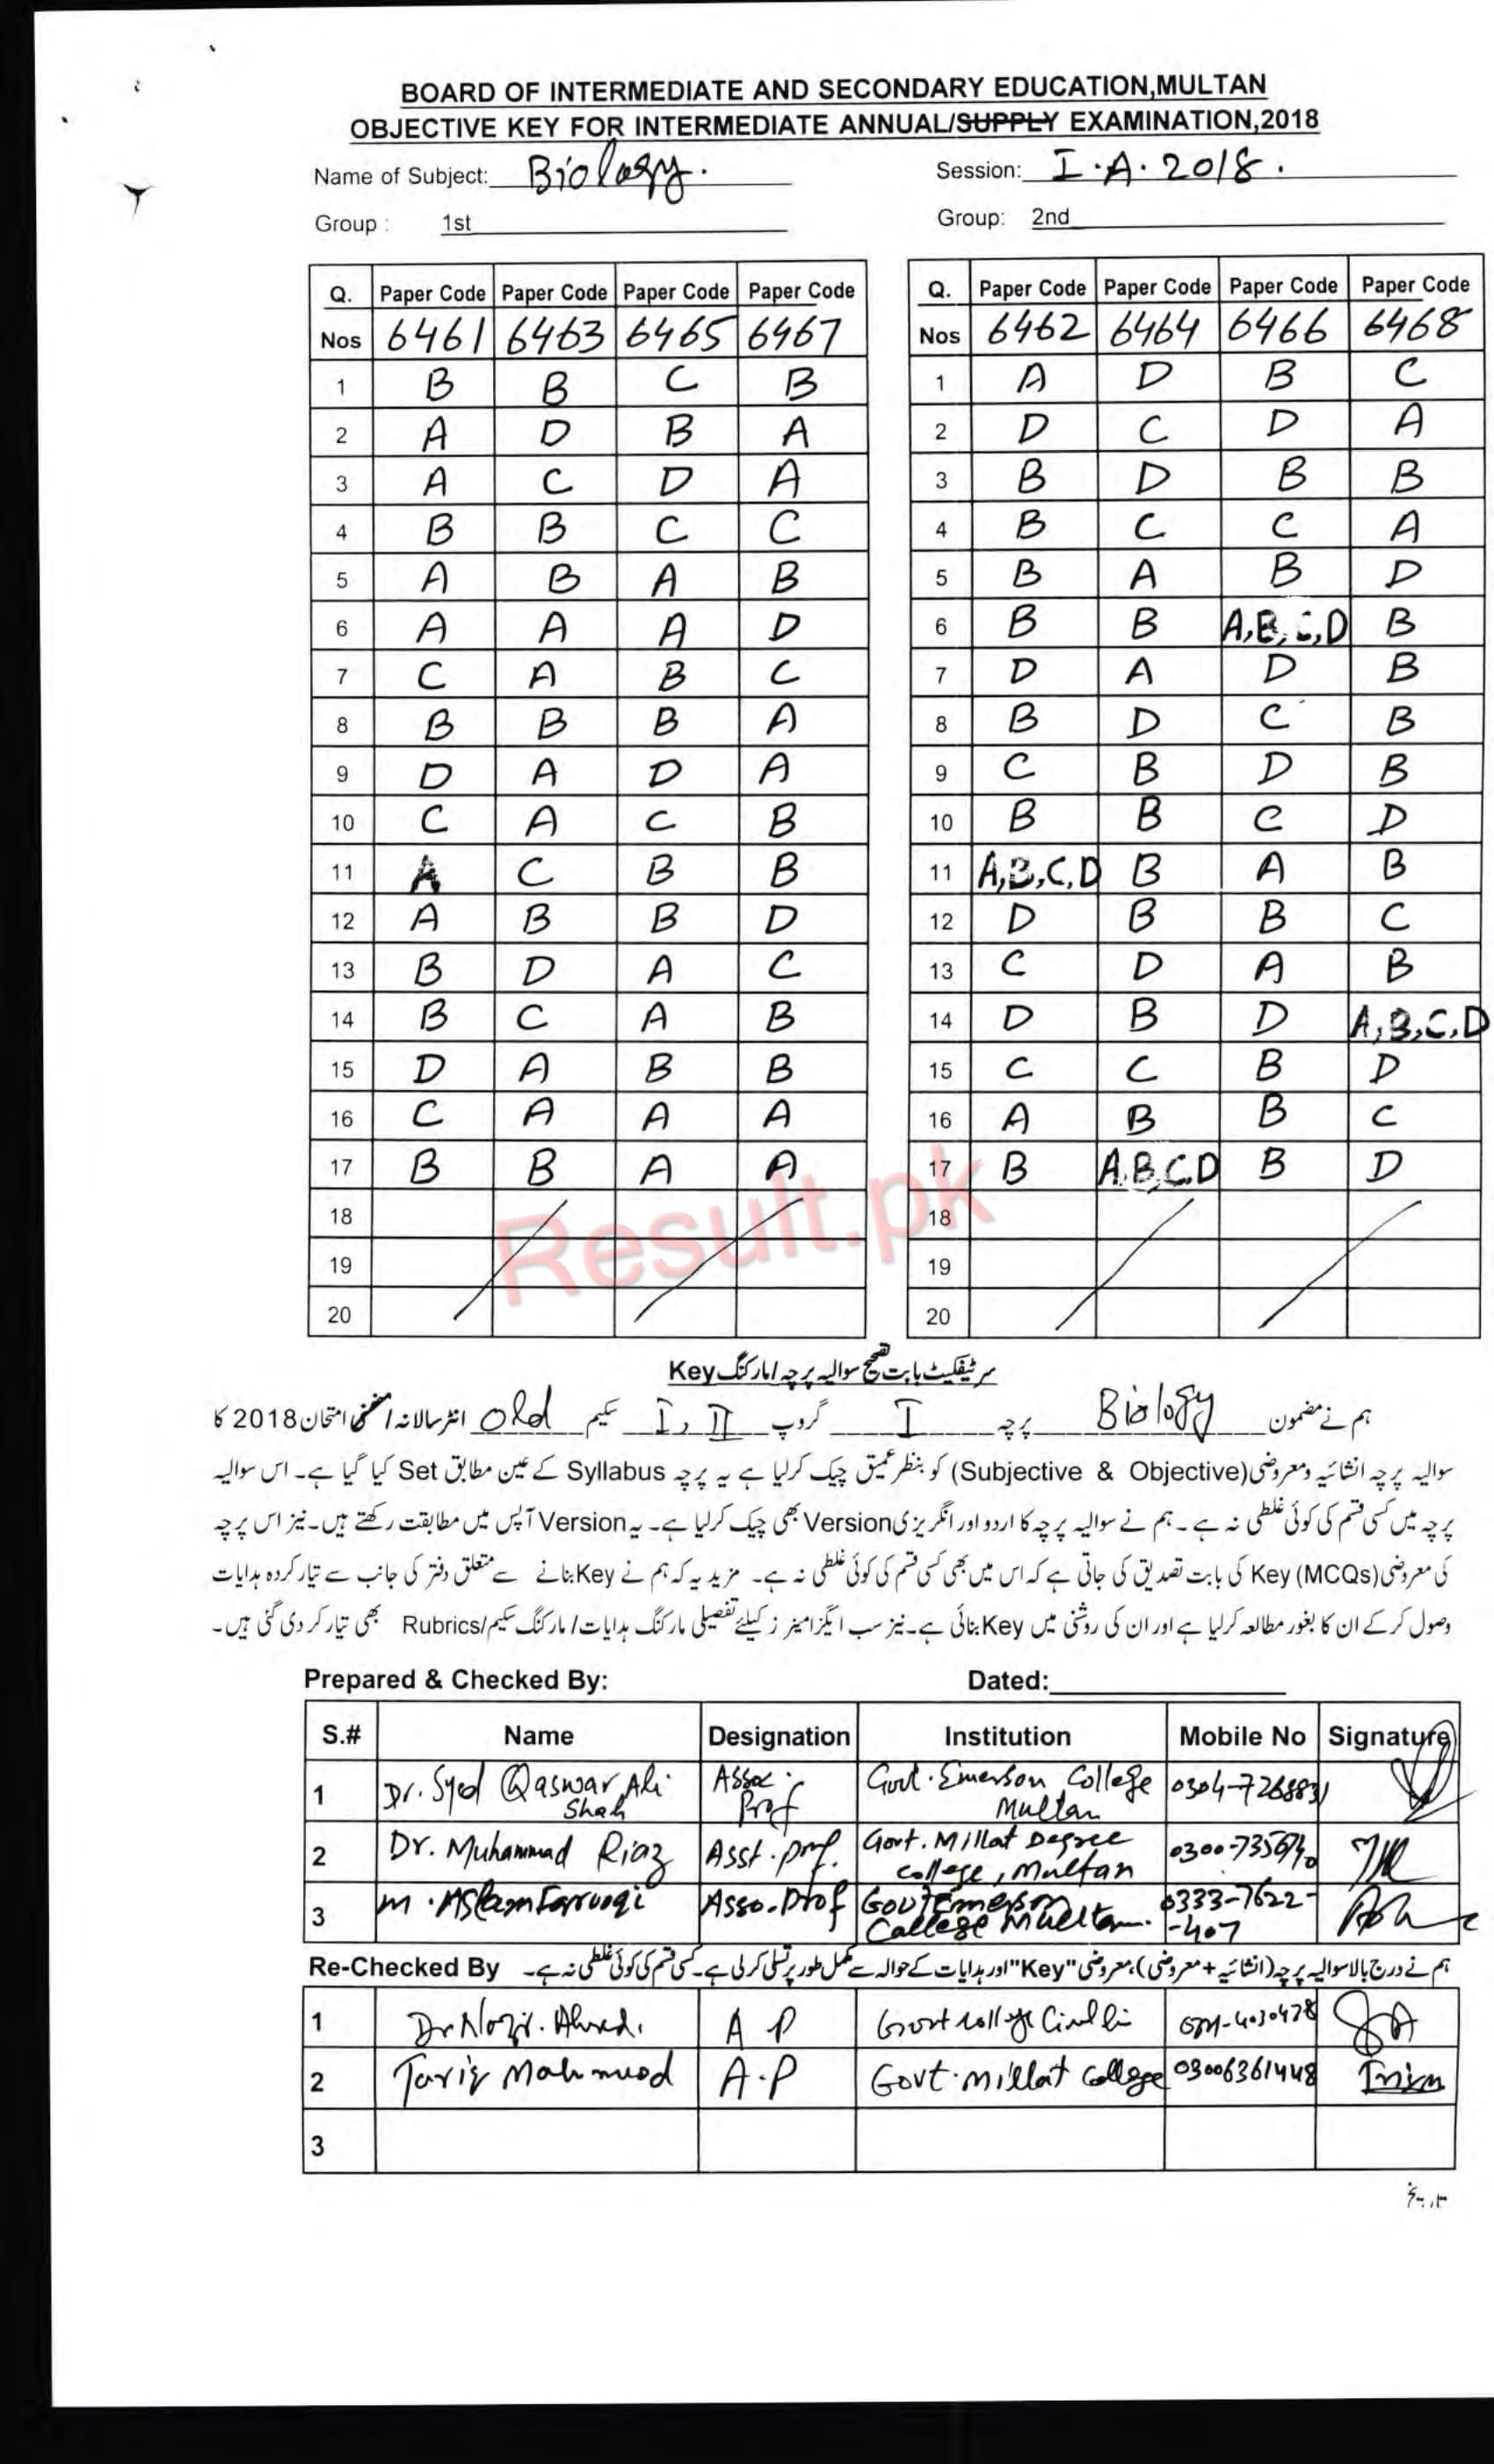 BOARD OF INTERMEDIATE AND SECONDARY EDUCATION,MULTAN
OBJECTIVE KEY FOR INTERMEDIATE ANNUAL/SUPPLY EXAMINATION,2018
Name of Subject: Biology. Session: I.A.2018.
Group : 1st Group: 2nd
Q. Paper Code Paper Code Paper Code Paper Code Q. Paper Code Paper Code Paper Code Paper Code
Nos 6461 6463 6465 6467 Nos 6462 6464 6466 6468
1 B B C B 1 A D B C
2 A D B A 2 D C D A
3 A C D A 3 B D B B
4 B B C C 4 B C C A
5 A B A B 5 B A B D
6 A A A D 6 B B A,B,C,D B
7 C A B C 7 D A D B
8 B B B A 8 B D C B
9 D A D A 9 C B D B
10 C A C B 10 B B C D
11 A C B B 11 A,B,C,D B A B
12 A B B D 12 D B B C
13 B D A C 13 C D A B
14 B C A B 14 D B D A,B,C,D
15 D A B B 15 C C B D
16 C A A A 16 A B B C
17 B B A A 17 B A,B,C,D B D
18 18
19 19
20 20
Result.pk
سرٹیفکیٹ بابت تصحیح سوالیہ پرچہ/مارکنگ Key
ہم نے مضمون Biology پرچہ I گروپ I, II سکیم Old انٹر سالانہ امتحان 2018 کا
سوالیہ پرچہ انشائیہ و معروضی (Subjective & Objective) کو بنظر عمیق چیک کرلیا ہے یہ پرچہ Syllabus کے عین مطابق Set کیا گیا ہے۔ اس سوالیہ
پرچہ میں کسی قسم کی کوئی غلطی نہ ہے۔ ہم نے سوالیہ پرچہ کا اردو اور انگریزی Version بھی چیک کرلیا ہے۔ یہ Version آپس میں مطابقت رکھتے ہیں۔ نیز اس پرچہ
کی معروضی (MCQs) Key کی بابت تصدیق کی جاتی ہے کہ اس میں بھی کسی قسم کی کوئی غلطی نہ ہے۔ مزید یہ کہ ہم نے Key بنانے سے متعلق دفتر کی جانب سے تیار کردہ ہدایات
وصول کرکے ان کا بغور مطالعہ کرلیا ہے اور ان کی روشنی میں Key بنائی ہے۔ نیز سب ایگزامینرز کیلئے تفصیلی مارکنگ ہدایات/مارکنگ سکیم/Rubrics بھی تیار کردی گئی ہیں۔
Prepared & Checked By: Dated:
S.# Name Designation Institution Mobile No Signature
1 Dr. Syed Qaswar Ali Shah Assoc. Prof Govt. Emerson College Multan
2 Dr. Muhammad Riaz Asst. prof. Govt. Millat Degree College, Multan
3 M. Aslam Farooqi Asso. Prof Govt Emerson College Multan. 0333-7622-407
Re-Checked By ہم نے درج بالا سوالیہ پرچہ (انشائیہ + معروضی)، معروضی "Key" اور ہدایات کے حوالہ سے مکمل طور پر تسلی کرلی ہے۔ کسی قسم کی کوئی غلطی نہ ہے۔
1 A P
2 Tariq Mahmood A.P Govt. Millat College 03006361448
3